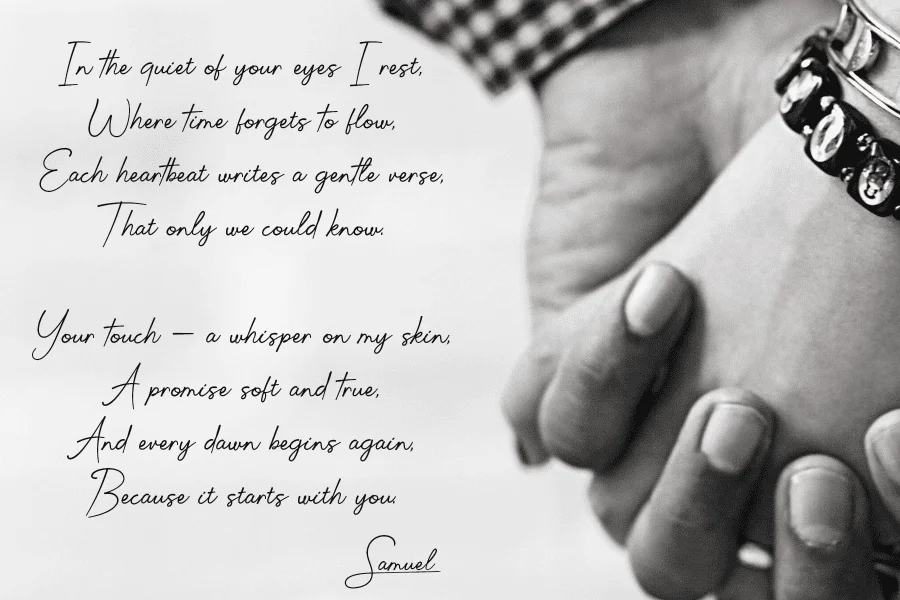 In the quiet of your eyes I rest,
Where time forgets to flow,
Each heartbeat writes a gentle verse,
That only we could know.
Your touch — a whisper on my skin,
A promise soft and true,
And every dawn begins again,
Because it starts with you.
Samuel